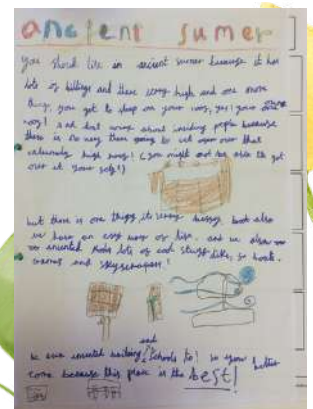 ancient sumer
you should live in ancient sumer because it has
lots of and there very high and one more
thing, you get to sleep on your roof, yes! your
roof! and dont worry about invading people because
there is no way there going to get over that
extremely high! (you might not be able to get
over it your self!)
but there is one thing, its very but also
we have an easy way of life. and we also
invented lots of cool stuff like, so
and skyscrapers!
we even invented writing and schools to! so you better
come because this place is the best!